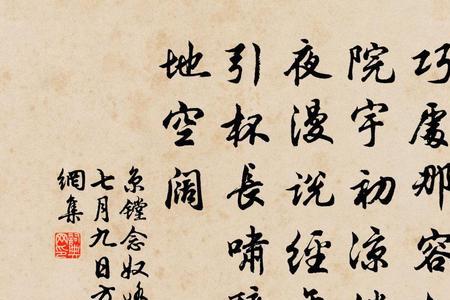 巧處那容
院宇初涼
夜漫說經
引杯長嘯
地空闊
京鏜念奴嬌
七月九日
網集